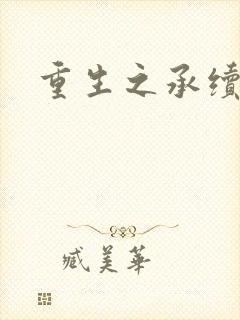 重生之承續
臧美華